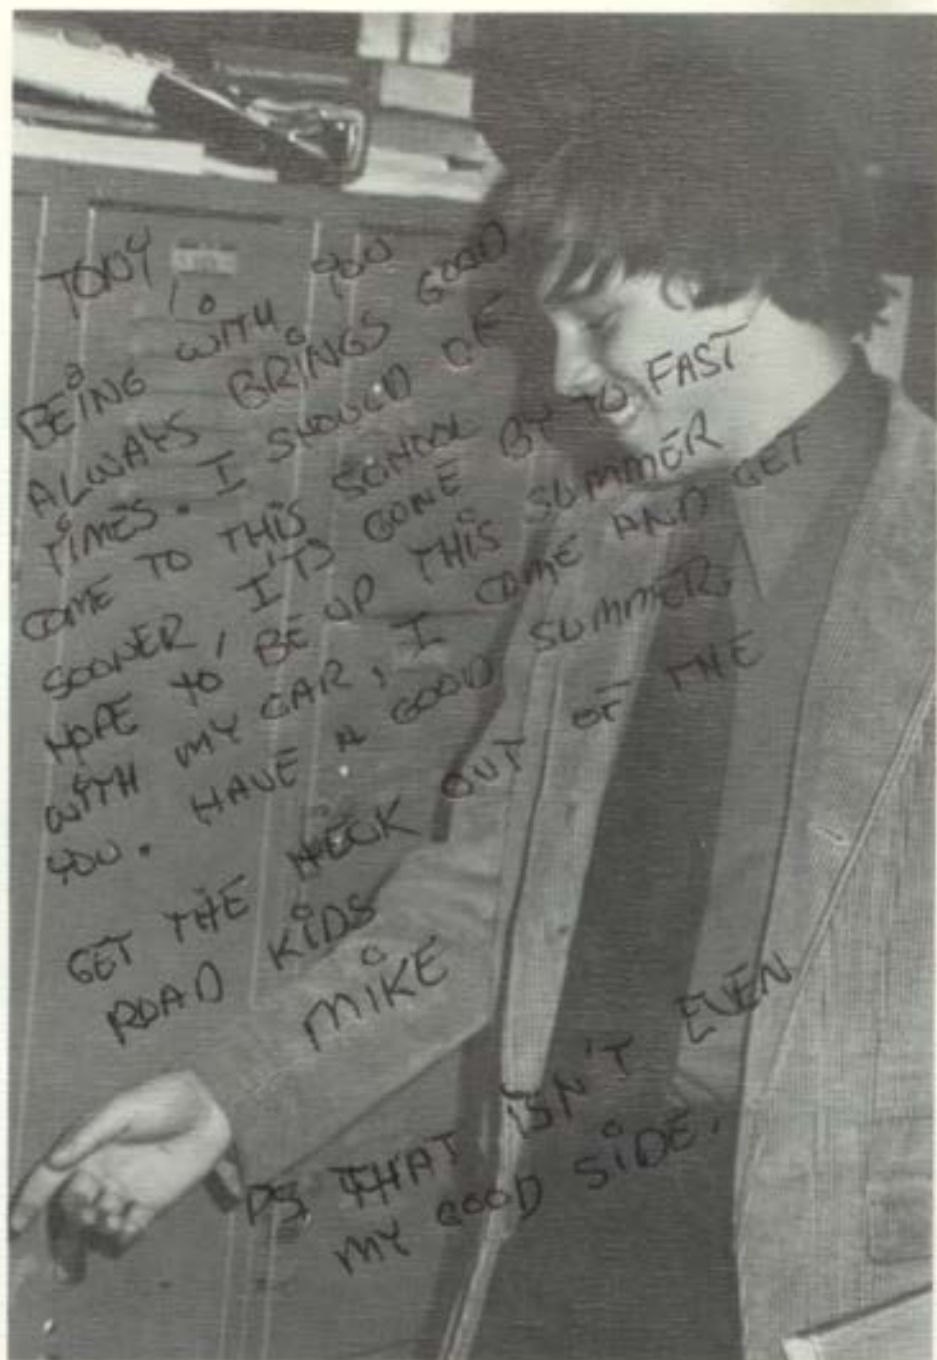 TONY
BEING WITH YOU
ALWAYS BRINGS GOOD
TIMES. I SHOULD OF
COME TO THIS SCHOOL
SOONER, ITS GONE BY TO FAST
HOPE TO BE UP THIS SUMMER
WITH MY CAR, I COME AND GET
YOU. HAVE A GOOD SUMMER.
GET THE HECK OUT OF THE
ROAD KIDS
MIKE
PS THAT ISN'T EVEN
MY GOOD SIDE.